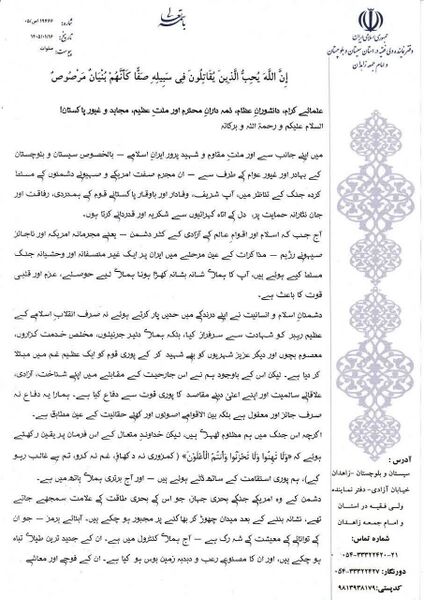 باسمه تعالی
جمهوری اسلامی ایران
دفتر نماینده ولی فقیه در استان سیستان و بلوچستان
و امام جمعه زاهدان
شماره: ۱۹۴۶۶/ص/۰۵
تاریخ: ۱۴۰۵/۰۱/۱۶
پیوست: صلوات
إِنَّ اللَّهَ يُحِبُّ الَّذِينَ يُقَاتِلُونَ فِي سَبِيلِهِ صَفًّا كَأَنَّهُم بُنْيَانٌ مَرْصُوصٌ
علمائے کرام، دانشورانِ عظام، ذمہ دارانِ محترم اور ملتِ عظیم، مجاہد و غیور پاکستان!
السلام علیکم و رحمۃ اللہ و برکاتہ
میں اپنی جانب سے اور ملتِ مقاوم و شہید پرور ایرانِ اسلامی – بالخصوص سیستان و بلوچستان
کے بہادر اور غیور عوام کی طرف سے – ان مجرم صفت امریکی و صہیونی دشمنوں کے مسلط
کردہ جنگ کے تناظر میں، آپ شریف، وفادار اور باوقار پاکستانی قوم کے ہمدردی، رفاقت اور
جاں نثارانہ حمایت پر، دل کی اتھاہ گہرائیوں سے شکریہ اور قدردانی کرتا ہوں.
آج جب کہ اسلام اور اقوامِ عالم کے آزادی کے کٹر دشمن – یعنی مجرمانہ امریکہ اور ناجائز
صہیونی رژیم – مذاکرات کے عین مرحلے میں ایران پر ایک غیر منصفانہ اور وحشیانہ جنگ
مسلط کیے ہوئے ہیں، آپ کا ہمارے شانہ بشانہ کھڑا ہونا ہمارے لیے حوصلے، عزم اور قلبی
قوت کا باعث ہے.
دشمنانِ اسلام و انسانیت نے اپنے درندگی میں حدیں پار کرتے ہوئے نہ صرف انقلابِ اسلامی کے
عظیم رہبر کو شہادت سے سرفراز کیا، بلکہ ہمارے دلیر جرنیلوں، مخلص خدمت گزاروں،
معصوم بچوں اور دیگر عزیز شہریوں کو بھی شہید کر کے پوری قوم کو ایک عظیم غم میں مبتلا
کر دیا ہے. لیکن اس کے باوجود ہم نے اس جارحیت کے مقابلے میں اپنے شناخت، آزادی،
علاقائی سالمیت اور اپنے اعلیٰ دینی مقاصد کا پوری قوت سے دفاع کیا ہے. ہمارا یہ دفاع نہ
صرف جائز اور معقول ہے بلکہ بین الاقوامی اصولوں اور کھلی حقانیت کے عین مطابق ہے.
اگرچہ اس جنگ میں ہم مظلوم ٹھہرے ہیں، لیکن خداوندِ متعال کے اس فرمان پر یقین رکھتے
ہوئے کہ «وَلَا تَهِنُوا وَلَا تَحْزَنُوا وَأَنتُمُ الْأَعْلَوْنَ» (کمزوری نہ دکھاؤ، غم نہ کرو، تم ہی غالب رہو
گے)، ہم پوری استقامت کے ساتھ ڈٹے ہوئے ہیں – اور آج برتری ہمارے ہاتھ میں ہے.
دشمن کے وہ امریکی جنگی بحری جہاز، جو اس کی بحری طاقت کے علامت سمجھے جاتے
تھے، نشانہ بننے کے بعد میدان چھوڑ کر بھاگنے پر مجبور ہو چکے ہیں. آبنائے ہرمز – جو ان
کی توانائی کے معیشت کی شہ رگ ہے – آج ہمارے کنٹرول میں ہے. ان کے جدید ترین طیارے تباہ
ہو چکے ہیں، اور ان کا مصنوعی رعب و دبدبہ زمین بوس ہو گیا ہے. ان کے فوجی اور معاشی
آدرس:
سیستان و بلوچستان-زاهدان
خیابان آزادی-دفتر نماینده
ولی فقیه در استان
و امام جمعه زاهدان
شماره تماس:
۰۵۴-۳۳۲۲۴۲۰-۲۱
دورنگار: ۰۵۴-۳۳۲۲۴۲۷
کدپستی: ۹۸۱۳۹۳۸۱۷۹